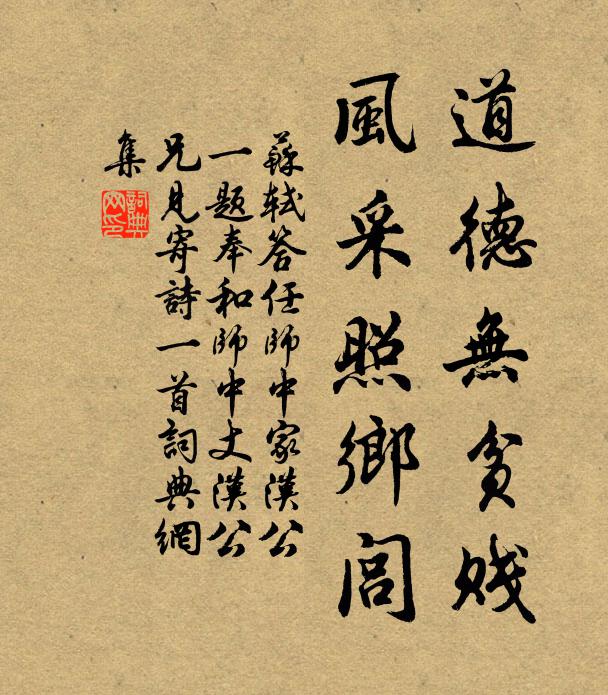 道德無貧賤
風采照鄉閭
蘇軾答任師中家漢公
一題奉和師中丈漢公
兄見寄詩一首詞典網
集
詞典
网印